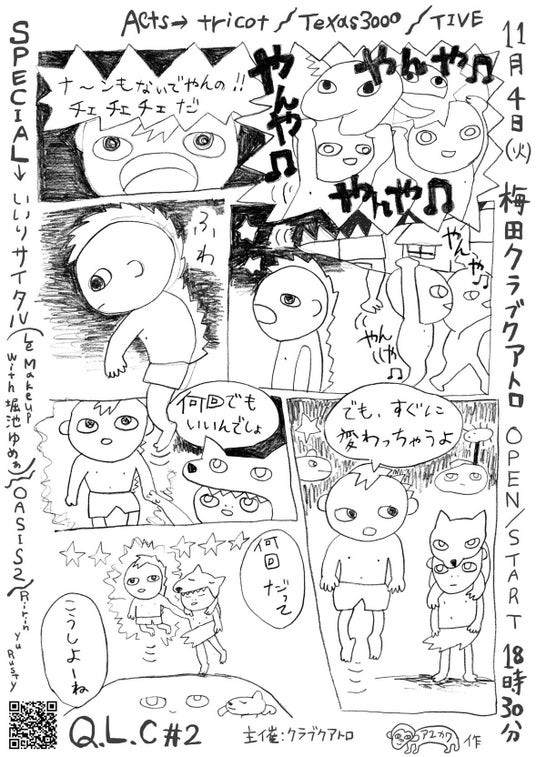 Acts→ tricot / Texas3000 / TIVE
11月4日(火) 梅田クラブクアトロ OPEN/START 18時30分
SPECIAL→いいリサイタル(Le Makeup with 堀池ゆめぁ)/OASIS2/Ririn yu Rusty
ナ〜ンもないでやんの!!
チェ チェ チェ だ
やんやや♫
やんや♫
やんや♫
ふわ
やんや♫
やんや♫
何回でも
いいんでしょ
でも、すぐに
変わっちゃうよ
何回だって
こうしよーね
Q.L.C #2
主催:クラブクアトロ
アユカワ 作